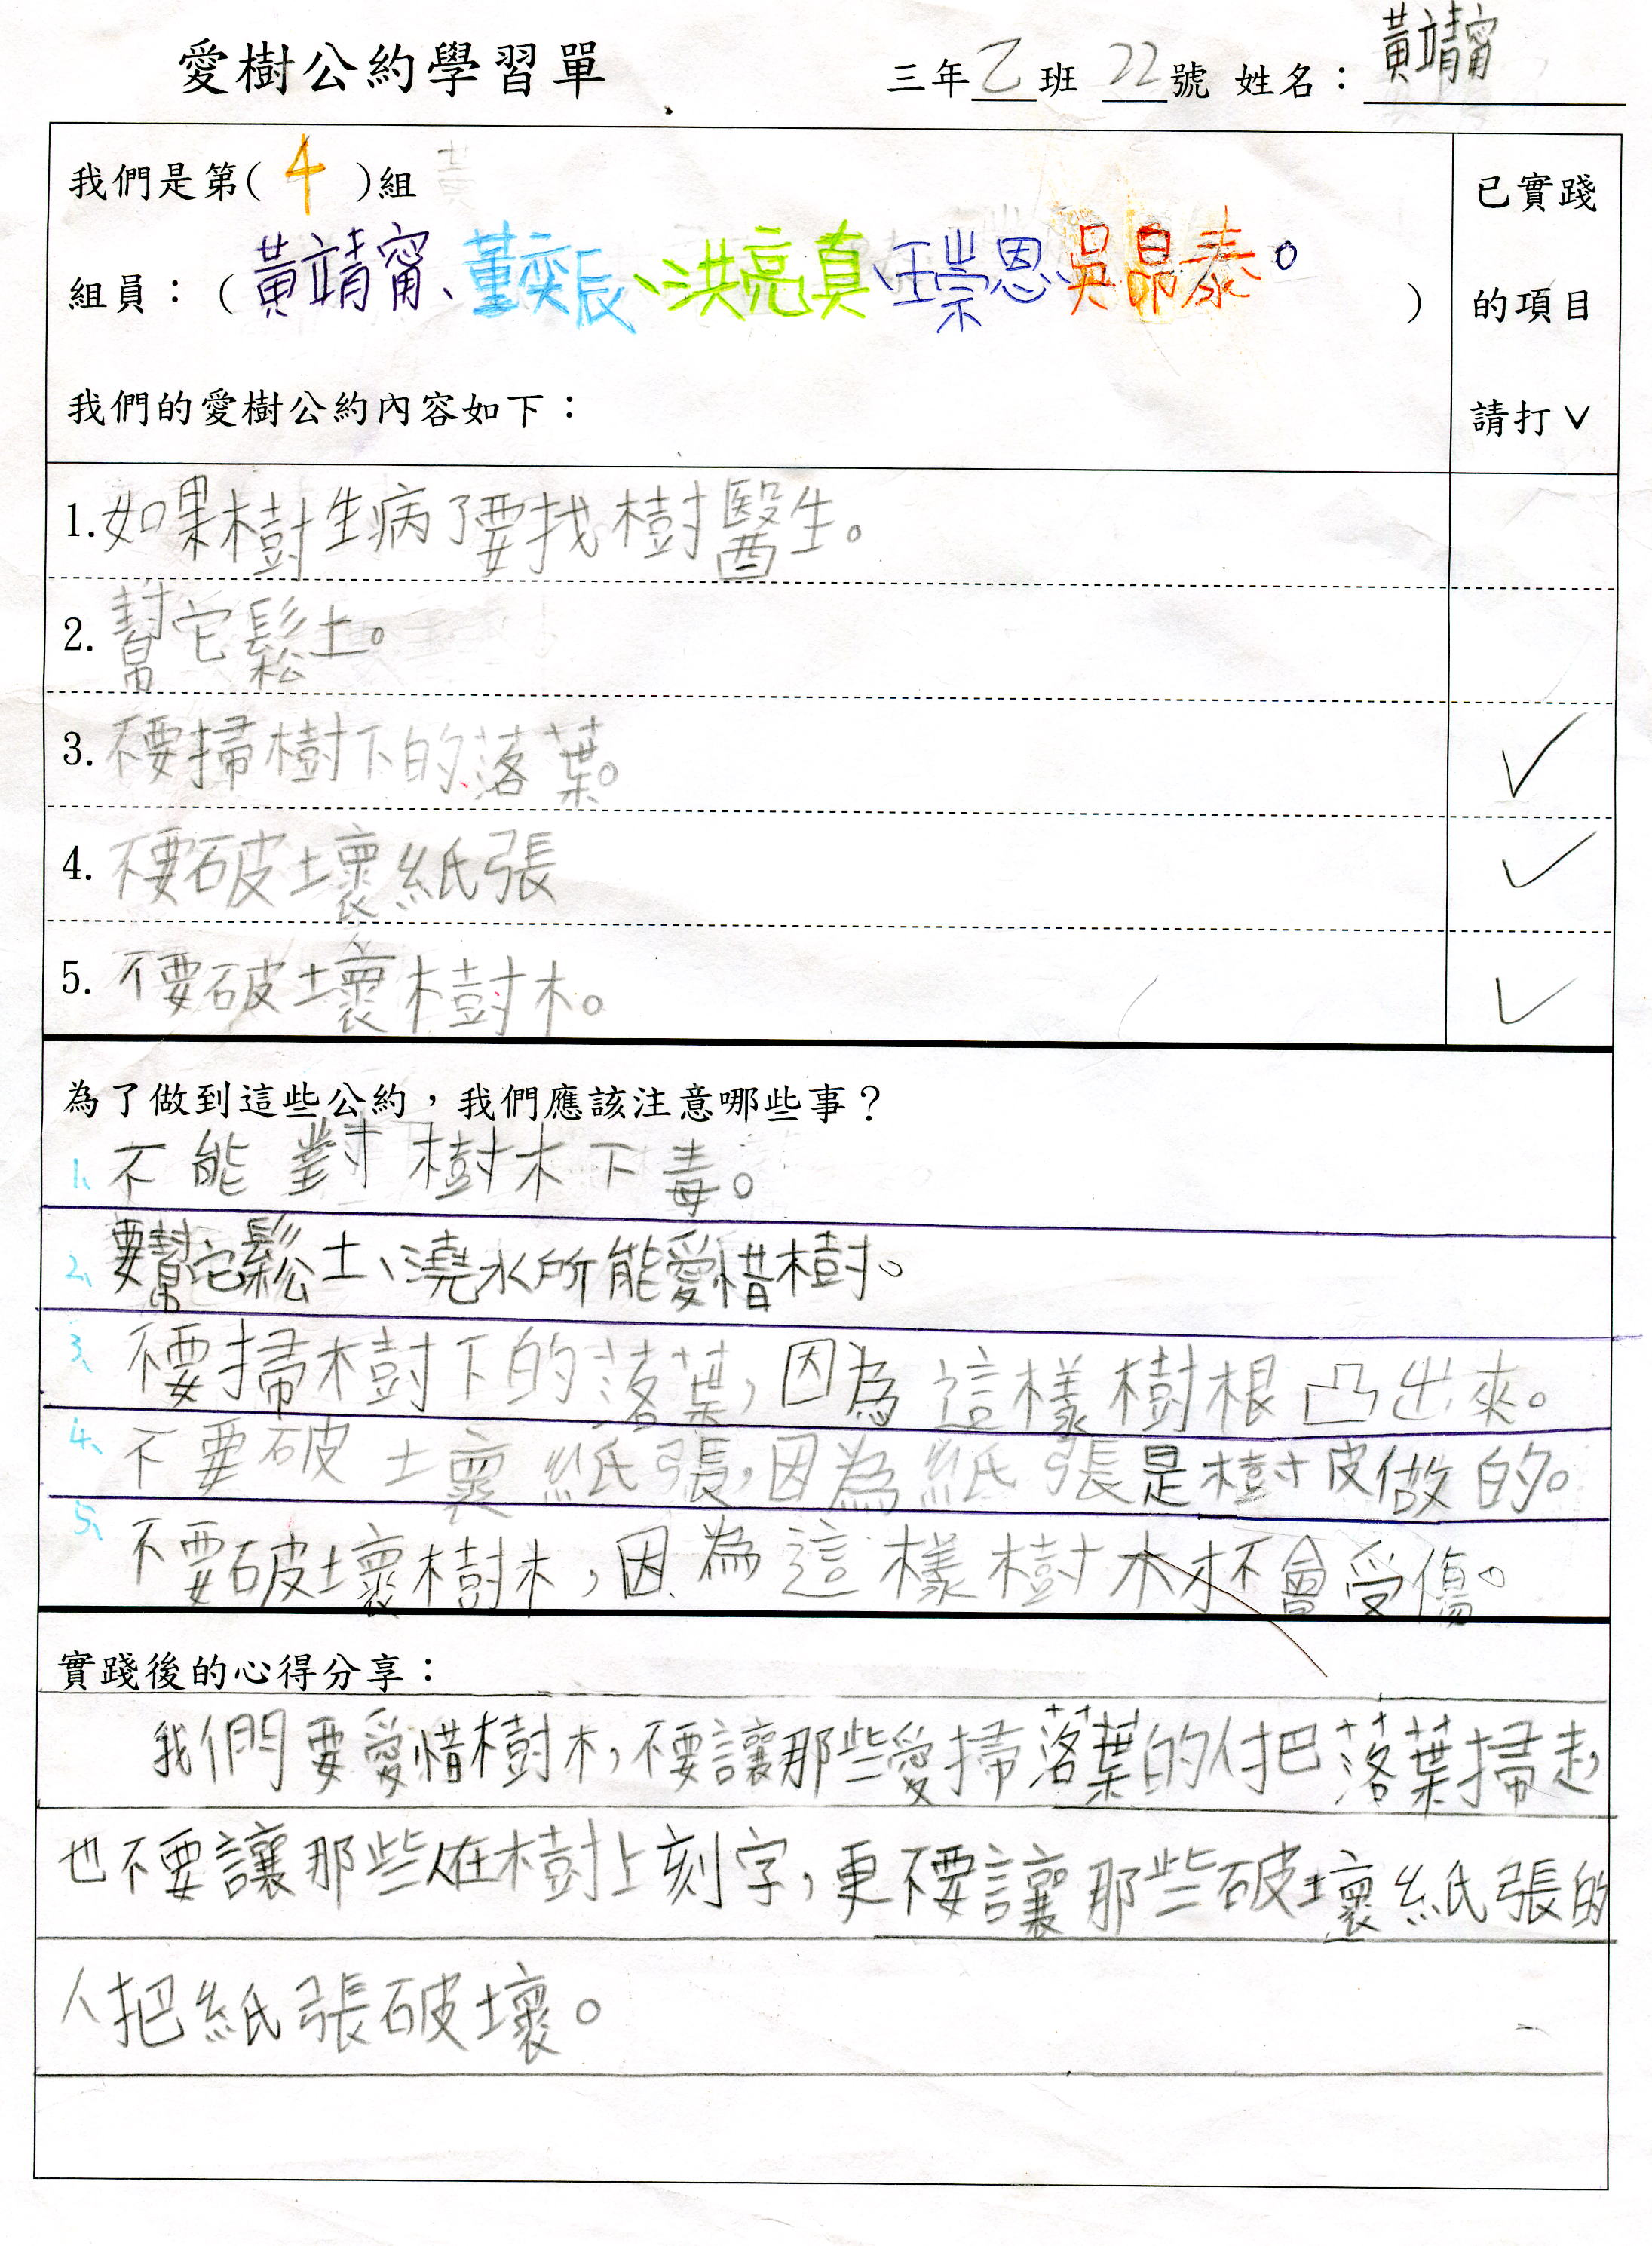 愛樹公約學習單 三年乙班 22號 姓名：黃靖甯
我們是第(4)組
已實踐
組員：(黃靖甯、董奕辰、洪亮真、汪崇恩、吳昂泰。)
的項目
我們的愛樹公約內容如下：
請打∨
1.如果樹生病了要找樹醫生。
2.幫它鬆土。
3.不要掃樹下的落葉。 ✓
4.不要破壞紙張 ✓
5.不要破壞樹木。 ✓
為了做到這些公約，我們應該注意哪些事？
1、不能對樹木下毒。
2、要幫它鬆土、澆水所能愛惜樹。
3、不要掃樹下的落葉，因為這樣樹根凸出來。
4、不要破壞紙張，因為紙張是樹皮做的。
5、不要破壞樹木，因為這樣樹木才不會受傷。
實踐後的心得分享：
我們要愛惜樹木，不要讓那些愛掃落葉的人把落葉掃走，
也不要讓那些人在樹上刻字，更不要讓那些破壞紙張的
人把紙張破壞。